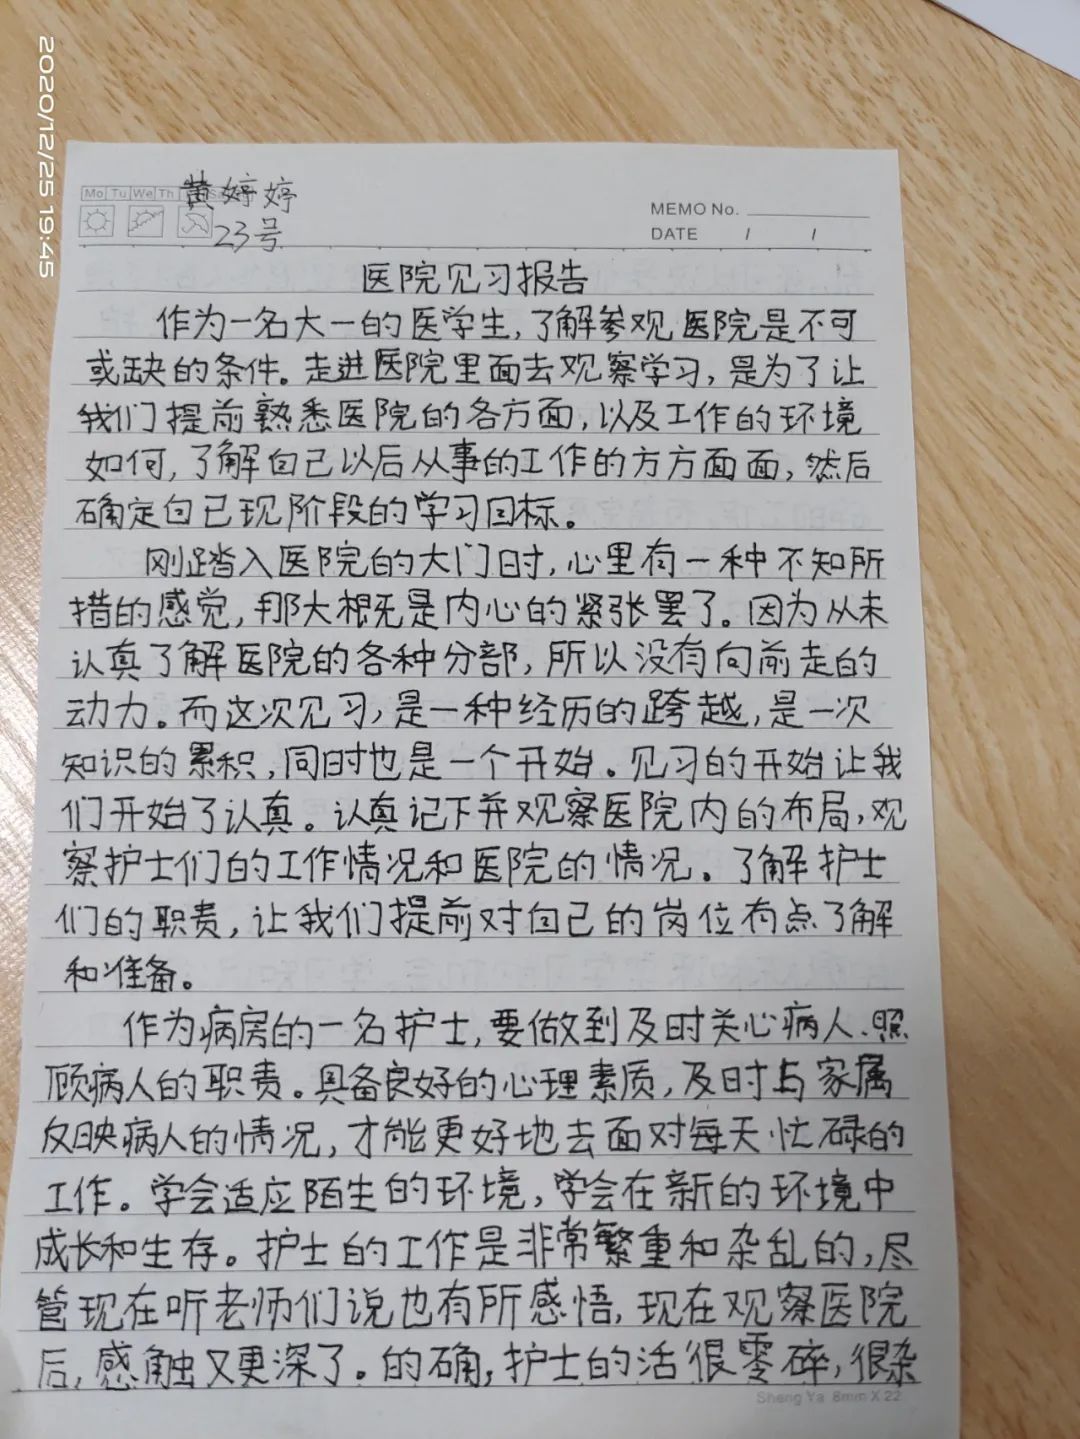 2020/12/25 19:45
Mo Tu We Th
黄婷婷
23号
MEMO No.
DATE / /
医院见习报告
作为一名大一的医学生,了解参观医院是不可
或缺的条件。走进医院里面去观察学习,是为了让
我们提前熟悉医院的各方面,以及工作的环境
如何,了解自己以后从事的工作的方方面面,然后
确定自己现阶段的学习目标。
刚踏入医院的大门时,心里有一种不知所
措的感觉,那大概是内心的紧张罢了。因为从未
认真了解医院的各种分部,所以没有向前走的
动力。而这次见习,是一种经历的跨越,是一次
知识的累积,同时也是一个开始。见习的开始让我
们开始了认真。认真记下并观察医院内的布局,观
察护士们的工作情况和医院的情况。了解护士
们的职责,让我们提前对自己的岗位有点了解
和准备。
作为病房的一名护士,要做到及时关心病人、照
顾病人的职责。具备良好的心理素质,及时与家属
反映病人的情况,才能更好地去面对每天忙碌的
工作。学会适应陌生的环境,学会在新的环境中
成长和生存。护士的工作是非常繁重和杂乱的,尽
管现在听老师们说也有所感悟,现在观察医院
后,感触又更深了。的确,护士的活很零碎,很杂
Sheng Ya 8mm X 22